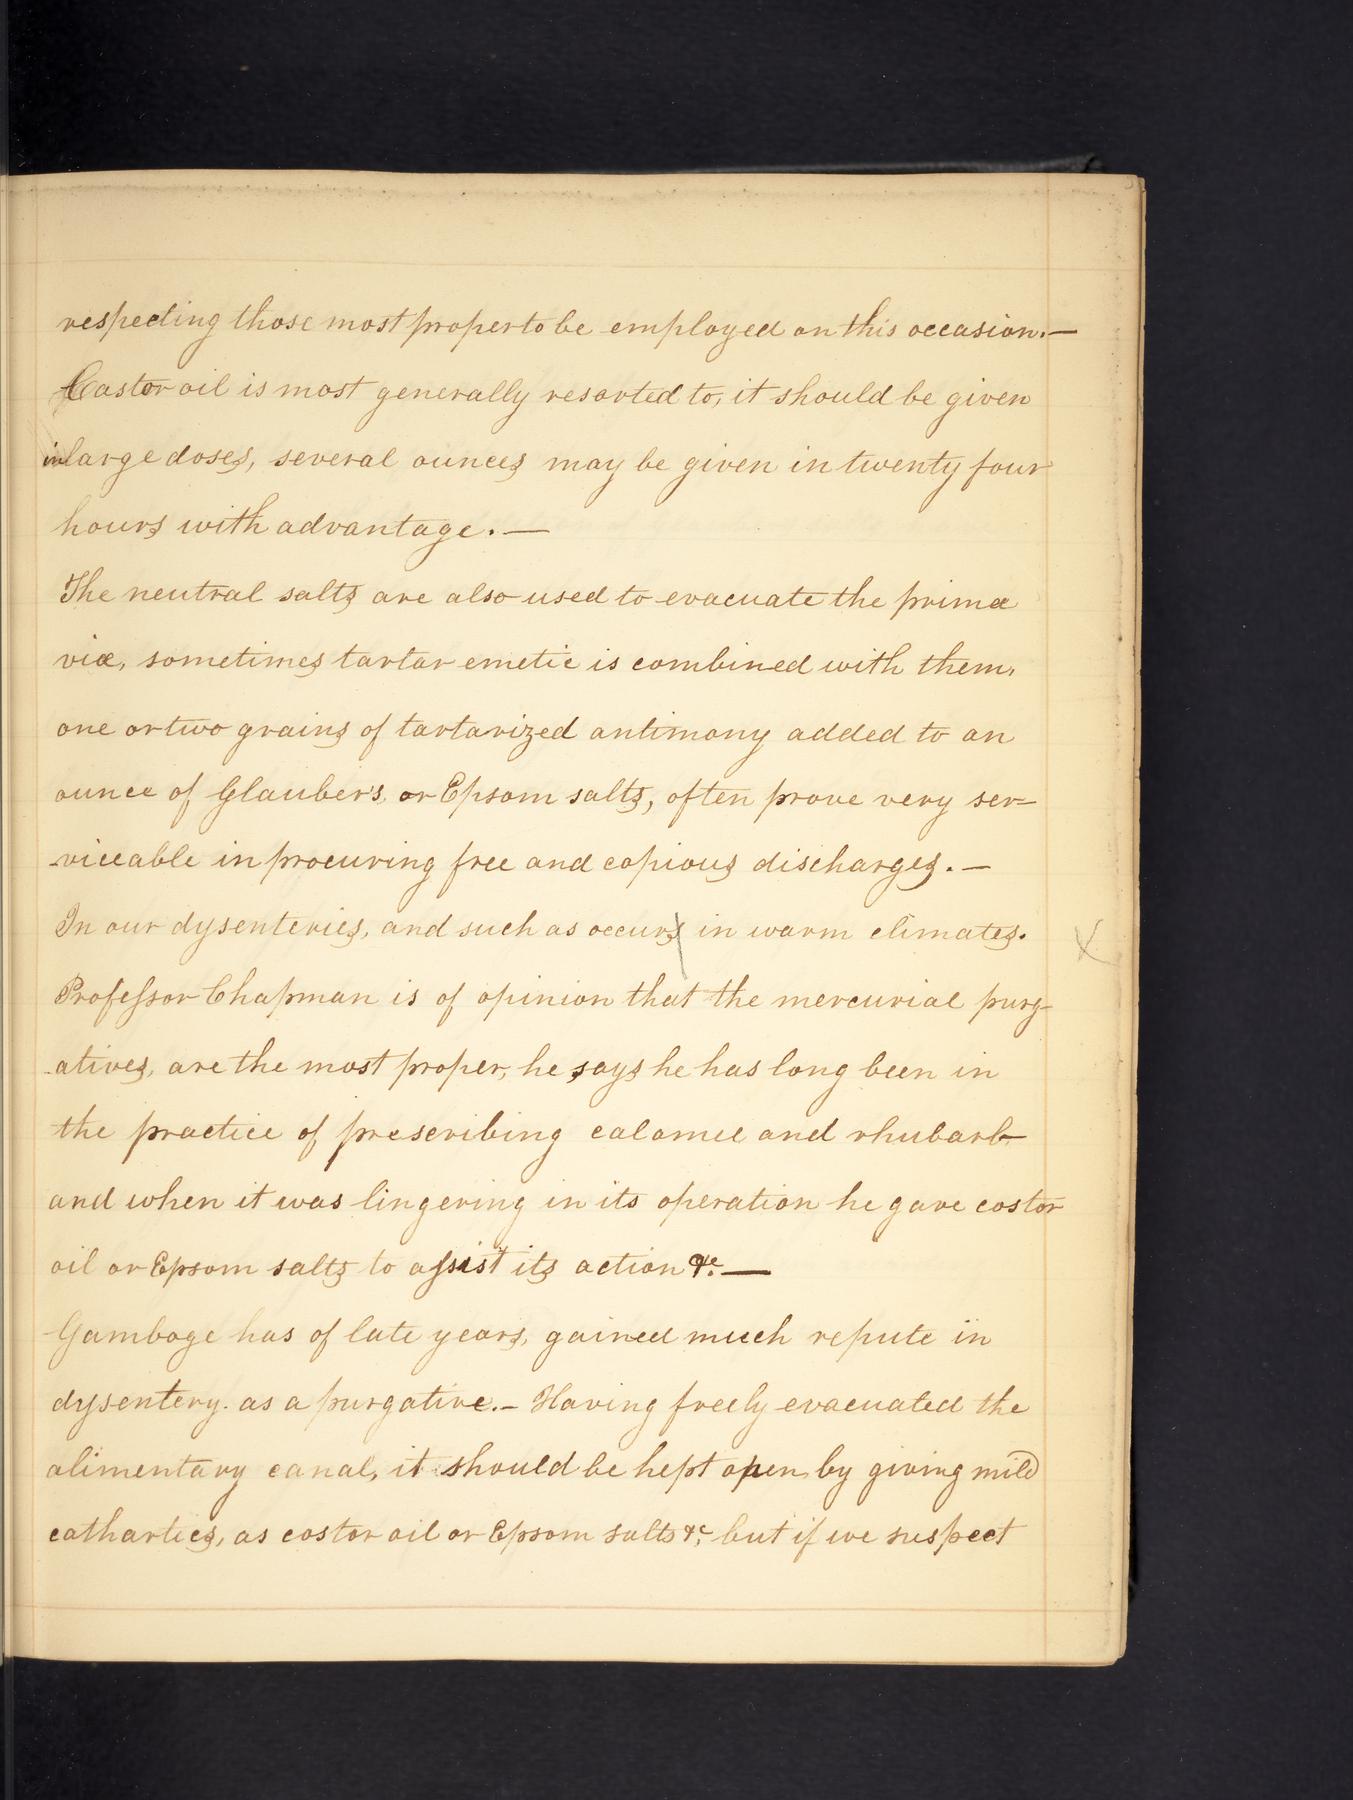 respecting those most proper to be employed on this occasion.—
Castor oil is most generally resorted to, it should be given
in large doses, several ounces may be given in twenty four
hours with advantage.—
The neutral salts are also used to evacuate the primæ
viæ, sometimes tartar emetic is combined with them,
one or two grains of tartarized antimony added to an
ounce of Glauber's or Epsom salts, often prove very ser-
viceable in procuring free and copious discharges.—
In our dysenteries, and such as occurs in warm climates.
Professor Chapman is of opinion that the mercurial purg-
atives, are the most proper, he says he has long been in
the practice of prescribing calomel and rhubarb
and when it was lingering in its operation he gave castor
oil or Epsom salts to assist its action &c.—
Gamboge has of late years, gained much repute in
dysentery. as a purgative.— Having freely evacuated the
alimentary canal, it should be kept open by giving mild
cathartics, as castor oil or Epsom salts &c, but if we suspect